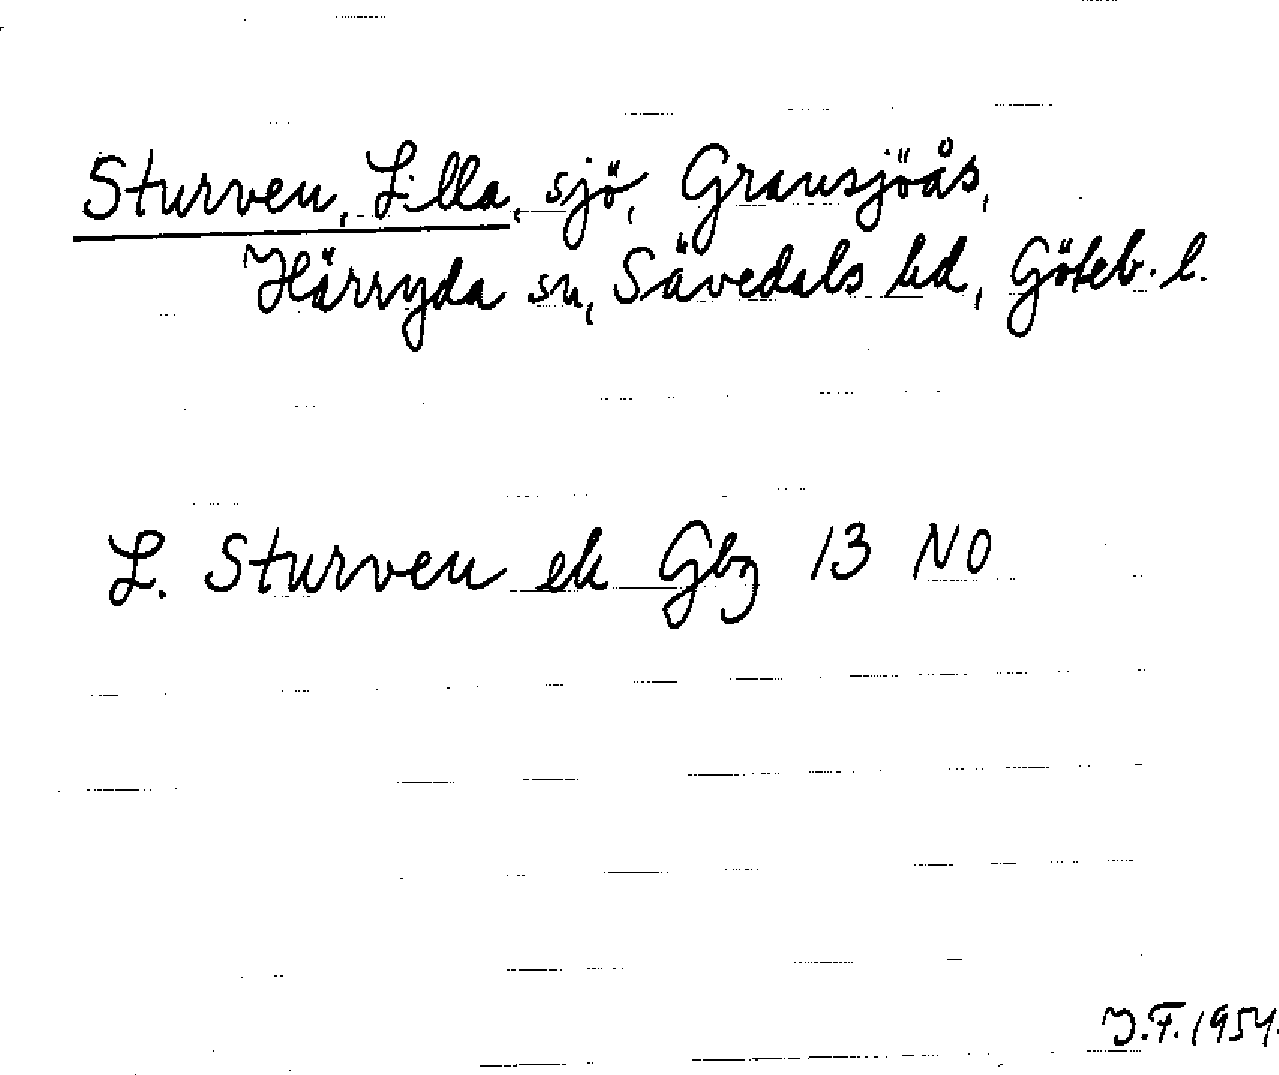 Sturven, Lilla, sjö, Gransjöås,
Härryda sn, Sävedals hd, Göteb. l.
L. Sturven ek Gbg 13 NO
J.F. 1954.